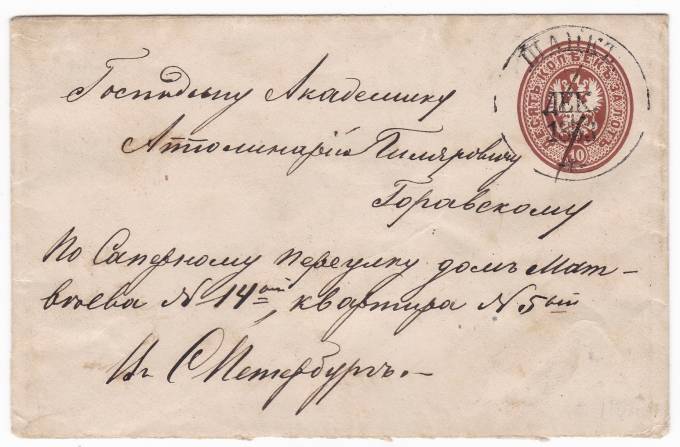 ШАЦКЪ
ДЕК.
10
Господину Академику
Апполинарію Гиляровичу
Горавскому
По Саперному переулку домъ Мат-
вѣева N 14ый, квартира N 5ый
Въ СПетербургъ.-